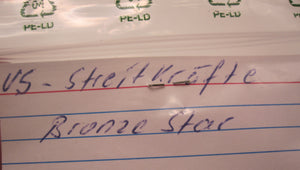 PE-LD PE-LD PE-LD
US - Streitkräfte
Bronze Star